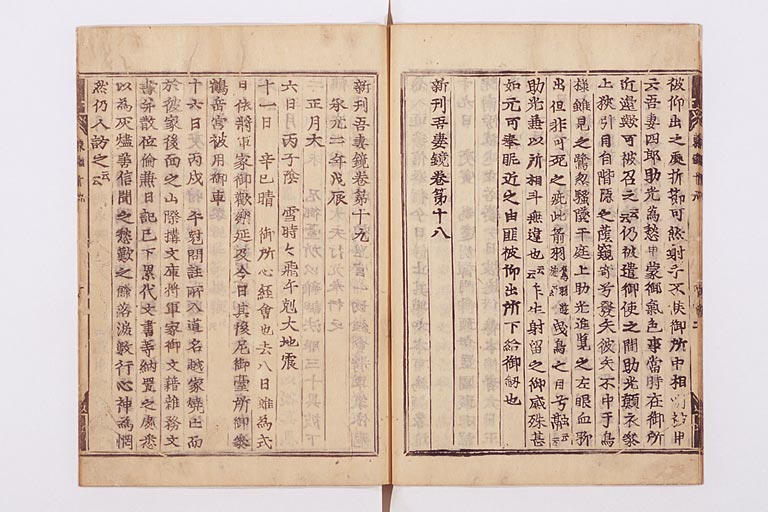 被仰出之處折節可然射手不候御所中相州被申
云吾妻四郎助光為愁申蒙御氣色事當時在御所
近邊歟可被召之云云仍被遣御使之間助光顛衣參
上挾引目自階隱之蔭窺寄兮發矢彼矢不中于鳥
樣雖見之鷺忽騷墜于庭上助光進覽之左眼血聊
出但非可死之疵此箭羽曳鳥之目兮融云云
助光兼以所相斗無違也云云乍生射留之御感殊甚
如元可奉眤近之由匪被仰出所下給御劔也
新刊吾妻鏡卷第十八
新刊吾妻鏡卷第十九
承元二年戊辰
正月大
六日月丙子陰 雪時々飛午剋大地震
十一日 辛巳晴 御所心經會也去八日雖為式
日依將軍家御歡樂延及今日其後尼御臺所御參
鶴岳宮被用御車
十六日丙戌 午尅問註所入道名越家燒亡而
於彼家後面之山際搆文庫將軍家御文籍雜務文
書并散位倫兼日記已下累代文書等納置之處悉
以為灰燼善信聞之愁歎之餘落淚數行心神為惘
然仍人訪之云云